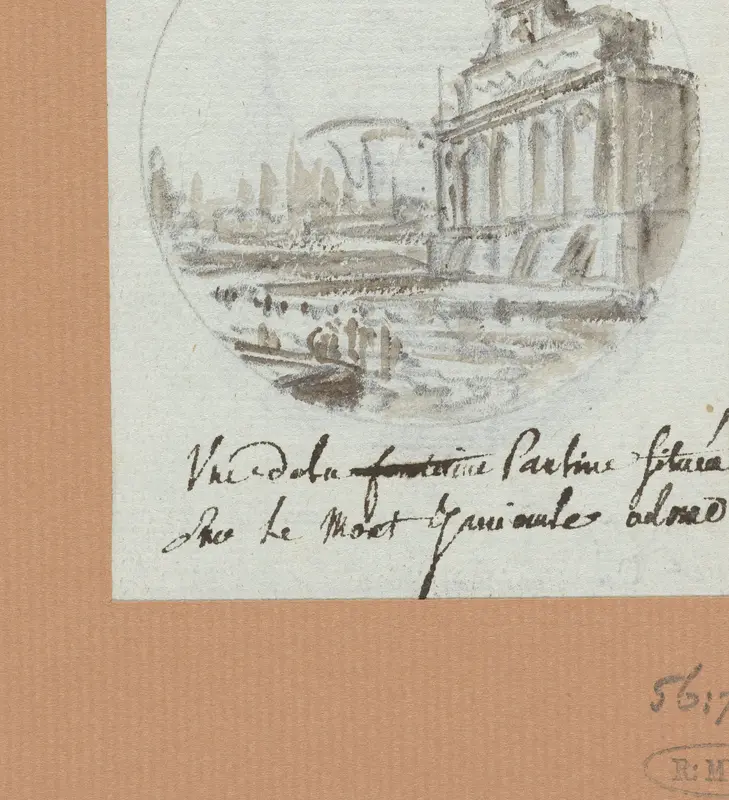 Vue dela fontaine Pauline située
Sur Le Mont Janicule
56:7
R:M